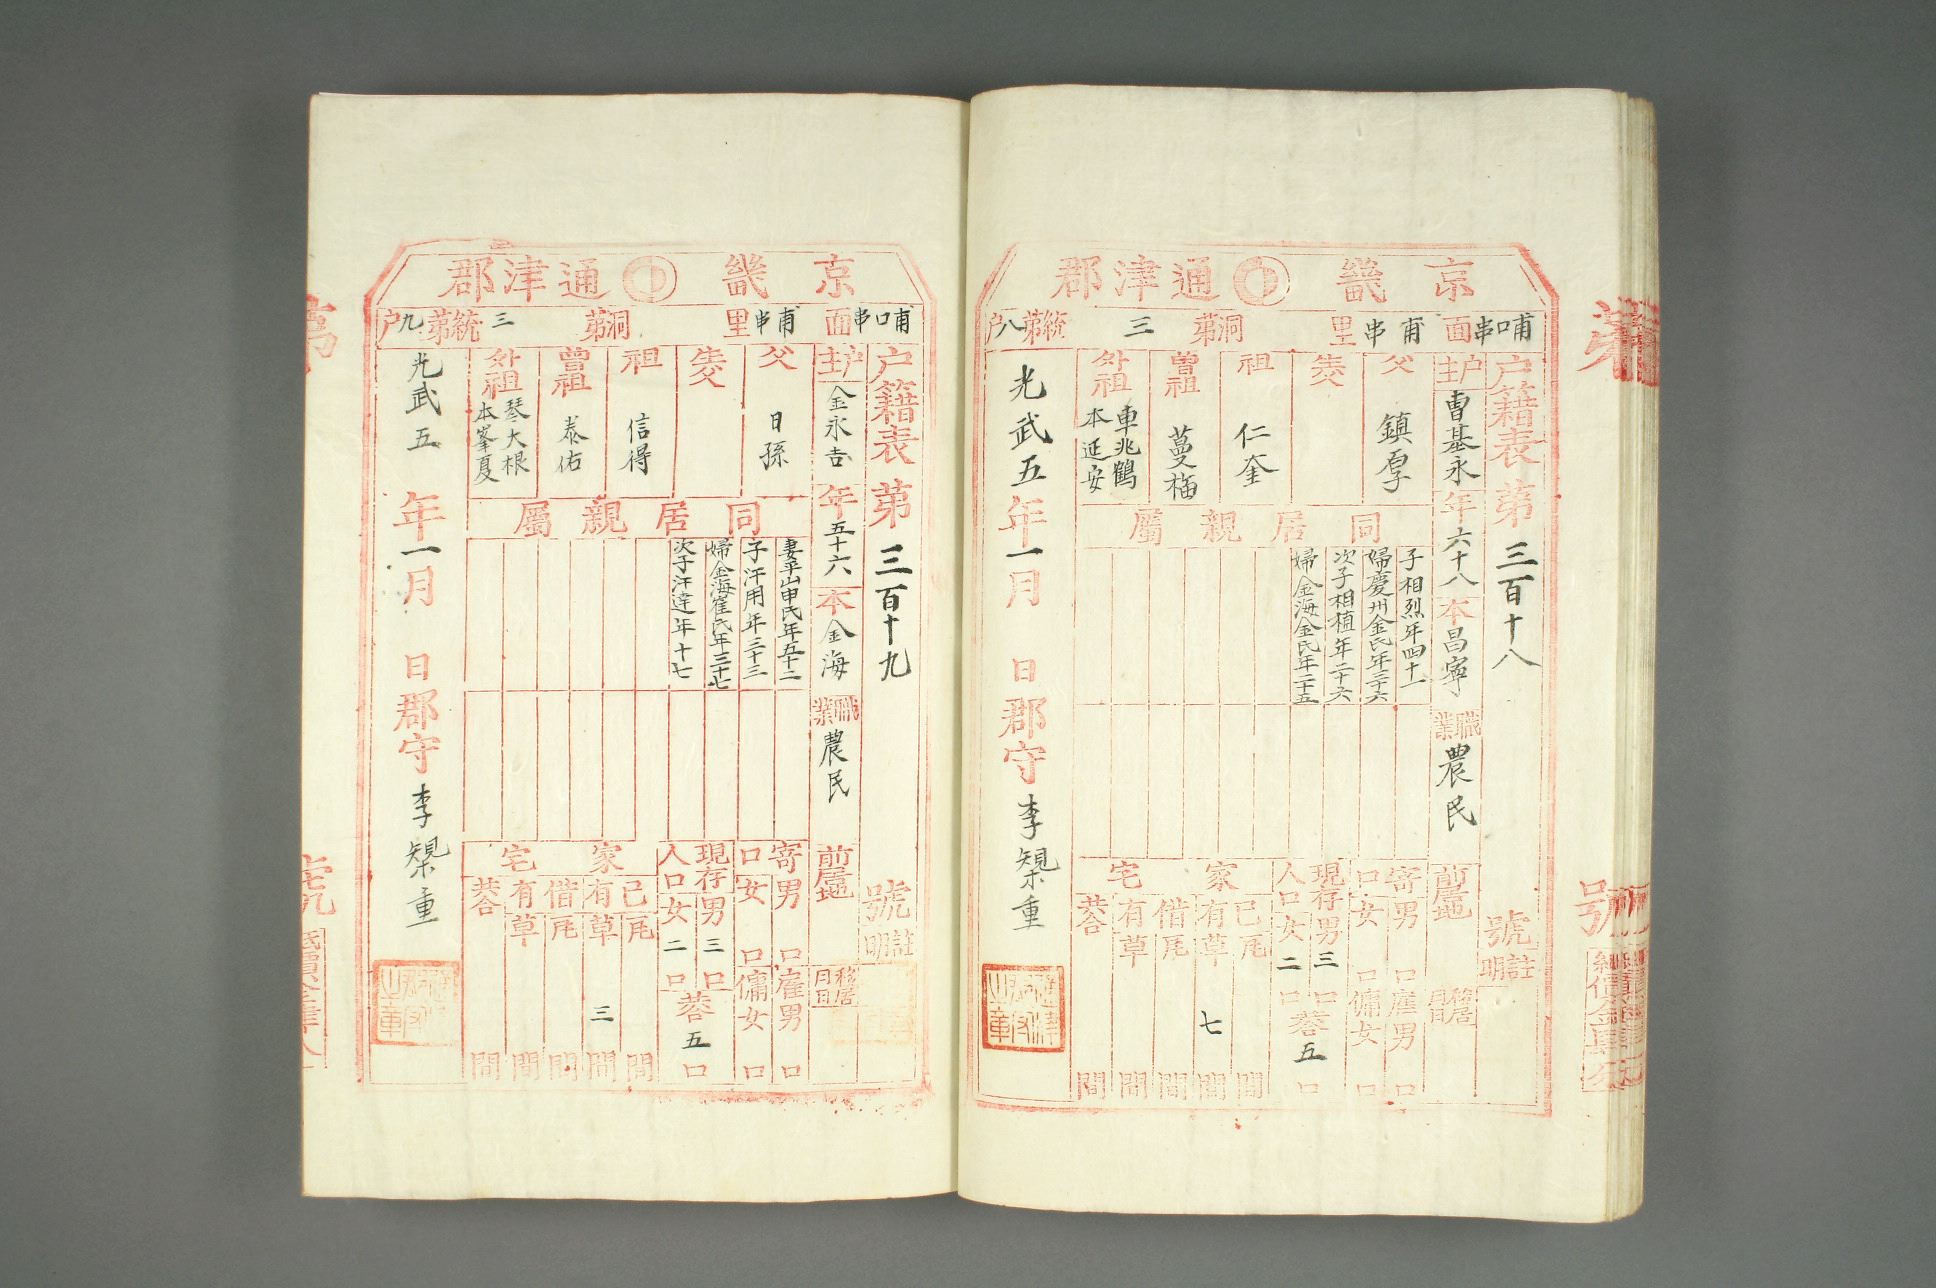 京畿 通津郡
哺口串面 甫串里 洞第 三 統第八户
户籍表 第 三百十八 號
註明
户主 曺基永 年 六十八 本 昌寧 職業 農民 前居地 移居月日
父 鎮厚
生父
祖 仁奎
曾祖 蔓梅
外祖 車兆鶴 本延安
同居親屬
子相烈年四十一
婦慶州金氏年三十六
次子相植年二十六
婦金海金氏年二十五
寄口 男 口 女 口
雇男 口 傭女 口
現存人口 男 三 口 女 二 口 共合 五 口
家宅
己有 瓦 間 草 七 間
借有 瓦 間 草 間
共合 間
光武五年一月 日 郡守 李
京畿 通津郡
哺口串面 甫串里 洞第 三 統第九户
户籍表 第 三百十九 號
註明
户主 金永吉 年 五十六 本 金海 職業 農民 前居地 移居月日
父 日孫
生父
祖 信得
曾祖 泰佑
外祖 琴大根 本峯夏
同居親屬
妻平山申氏年五十二
子汗用年三十三
婦金海崔氏年三十七
次子汗達年十七
寄口 男 口 女 口
雇男 口 傭女 口
現存人口 男 三 口 女 二 口 共合 五 口
家宅
己有 瓦 間 草 三 間
借有 瓦 間 草 間
共合 間
光武五年一月 日 郡守 李